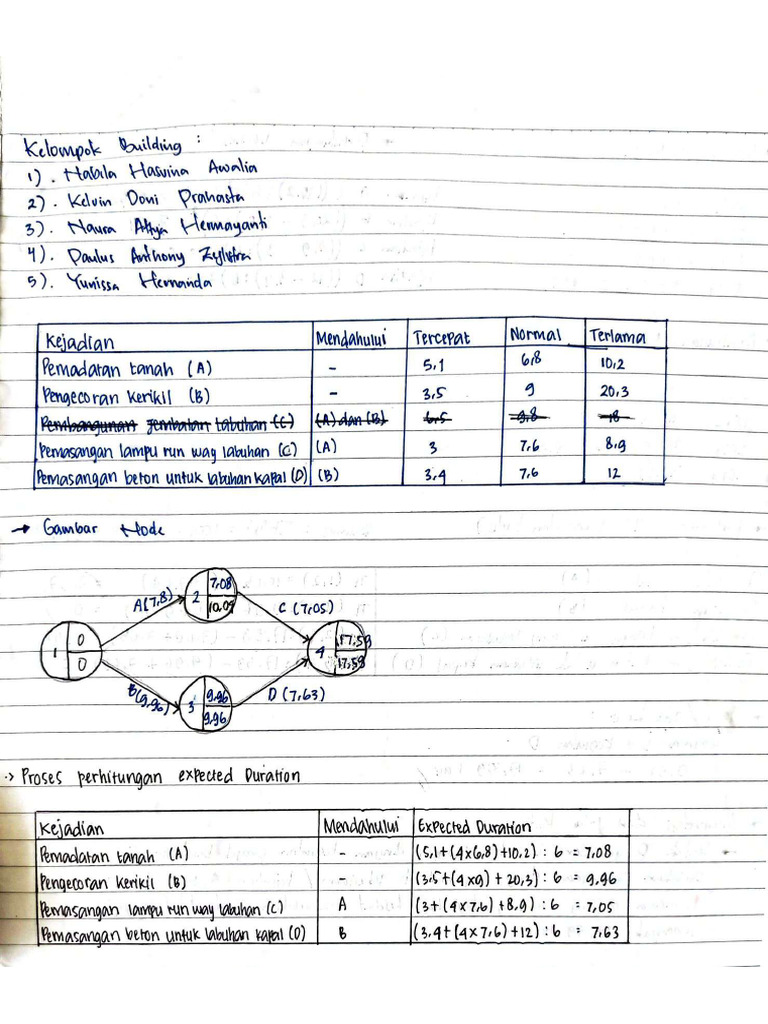 Kelompok Building :
1). Nabila Hasvina Awalia
2). Kelvin Doni Prahasta
3). Naura Hermayanti
4). Paulus Anthony Zylstra
5). Yunissa Hernanda
Kejadian Mendahului Tercepat Normal Terlama
Pemadatan tanah (A) - 5,1 6,8 10,2
Pengecoran kerikil (B) - 3,5 9 20,3
Pembangunan jembatan labuhan (C) (A) dan (B) 6,5 9,8 18
Pemasangan lampu run way labuhan (C) (A) 3 7,6 8,9
Pemasangan beton untuk labuhan kapal (D) (B) 3,4 7,6 12
→ Gambar Node
2 7,08
10,09
A(7,8)
C (7,05)
1 0
0
4 17,59
17,59
B(9,96)
3 9,96
9,96
D (7,63)
Proses perhitungan expected Duration
Kejadian Mendahului Expected Duration
Pemadatan tanah (A) - (5,1+(4x6,8)+10,2) : 6 = 7,08
Pengecoran kerikil (B) - (3,5+(4x9) + 20,3) : 6 = 9,96
Pemasangan lampu run way labuhan (C) A (3+(4x7,6)+8,9) : 6 = 7,05
Pemasangan beton untuk labuhan kapal (D) B (3,4+(4x7,6)+12) : 6 = 7,63